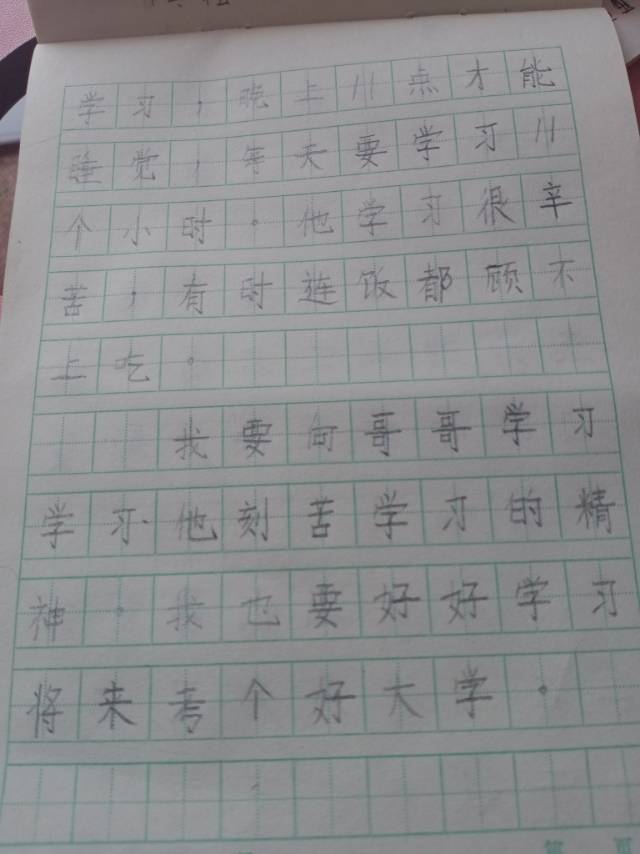 学习，晚上11点才能
睡觉，每天要学习11
个小时。他学习很辛
苦，有时连饭都顾不
上吃。
我要向哥哥学习
学习·他刻苦学习的精
神。我也要好好学习
将来考个好大学。
第 页